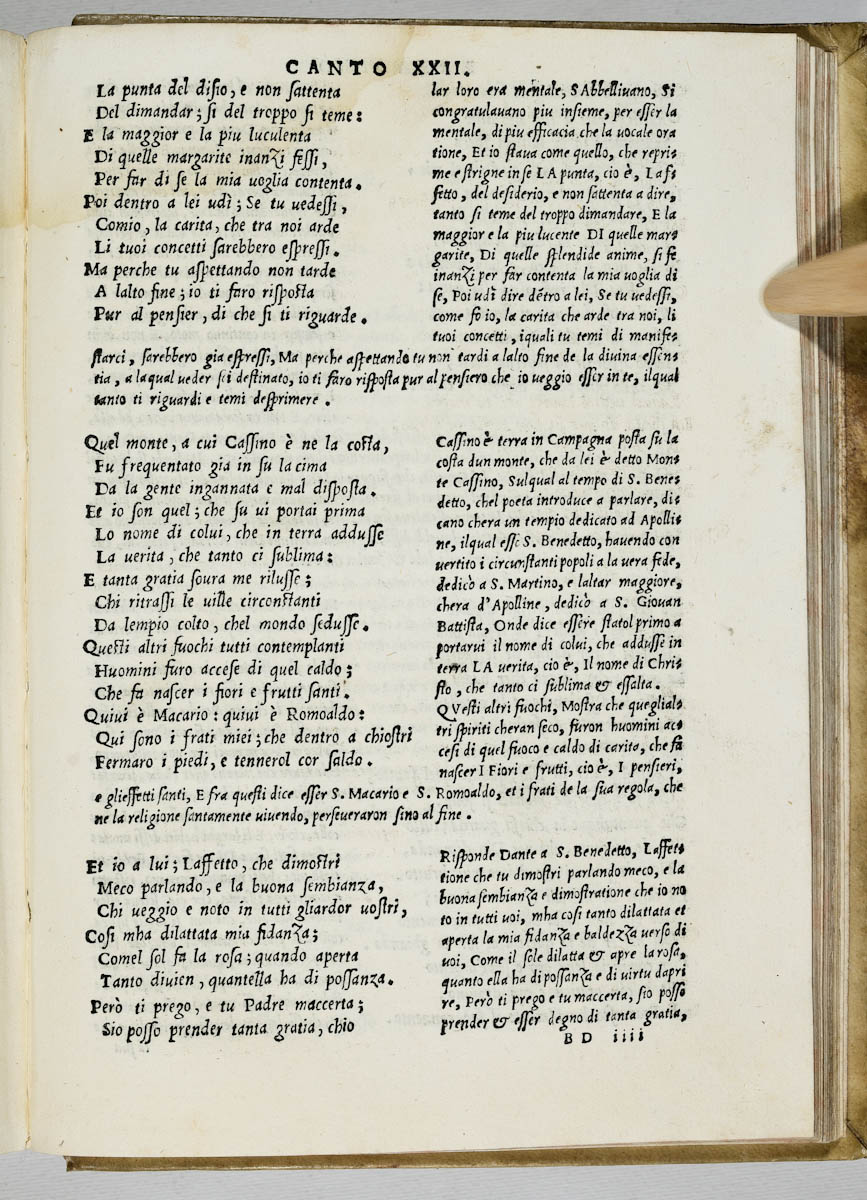 CANTO XXII.
La punta del disio, e non sattenta
Del dimandar; si del troppo si teme:
E la maggior e la piu luculenta
Di quelle margarite inanzi fessi,
Per far di se la mia uoglia contenta.
Poi dentro a lei udì; Se tu uedessi,
Comio, la carita, che tra noi arde
Li tuoi concetti sarebbero espressi.
Ma perche tu aspettando non tarde
A lalto fine; io ti faro risposta
Pur al pensier, di che si ti riguarde.
lar loro era mentale, SAbbelliuano, Si
congratulauano piu insieme, per esser la
mentale, di piu efficacia che la uocale ora
tione, Et io staua come quello, che repri-
me e strigne in se LA punta, cio è, Laf-
fetto, del desiderio, e non sattenta a dire,
tanto si teme del troppo dimandare, E la
maggior e la piu lucente DI quelle mar-
garite, Di quelle splendide anime, si fe
inanzi per far contenta la mia uoglia di
se, Poi udì dire dentro a lei, Se tu uedessi,
come fo io, la carita che arde tra noi, li
tuoi concetti, iquali tu temi di manifes-
starci, sarebbero gia espressi, Ma perche aspettando tu non tardi a lalto fine de la diuina essen-
tia, a laqual ueder sei destinato, io ti faro risposta pur al pensiero che io ueggio esser in te, ilqual
tanto ti riguardi e temi desprimere.
Quel monte, a cui Cassino è ne la costa,
Fu frequentato gia in su la cima
Da la gente ingannata e mal disposta.
Et io son quel; che su ui portai prima
Lo nome di colui, che in terra addusse
La uerita, che tanto ci sublima:
E tanta gratia soura me rilusse;
Chi ritrassi le uille circonstanti
Da lempio colto, chel mondo sedusse.
Questi altri fuochi tutti contemplanti
Huomini furo accese di quel caldo;
Che fa nascer i fiori e frutti santi.
Quiui è Macario: quiui è Romoaldo:
Qui sono i frati miei; che dentro a chiostri
Fermaro i piedi, e tennerol cor saldo.
Cassino è terra in Campagna posta su la
costa dun monte, che da lei è detto Mon-
te Cassino, Sulqual al tempo di S. Bene-
detto, chel poeta introduce a parlare, di-
cano chera un tempio dedicato ad Apolli-
ne, ilqual esse S. Benedetto, hauendo con
uertito i circunstanti popoli a la uera fede,
dedicò a S. Martino, e laltar maggiore,
chera d'Apolline, dedicò a S. Giouan
Battista, Onde dice essere statol primo a
portarui il nome di colui, che addusse in
terra LA uerita, cio è, Il nome di Chri-
sto, che tanto ci sublima & essalta.
QVesti altri fuochi, Mostra che queglial-
tri spiriti cheran seco, furon huomini ac-
cesi di quel fuoco e caldo di carita, che fa
nascer I Fiori e frutti, cio è, I pensieri,
e glieffetti santi, E fra questi dice esser S. Macario e S. Romoaldo, et i frati de la sua regola, che
ne la religione santamente uiuendo, perseueraron sino al fine.
Et io a lui; Laffetto, che dimostri
Meco parlando, e la buona sembianza,
Chi ueggio e noto in tutti gliardor uostri,
Cosi mha dilattata mia fidanza;
Comel sol fa la rosa; quando aperta
Tanto diuien, quantella ha di possanza.
Però ti prego, e tu Padre maccerta;
Sio posso prender tanta gratia, chio
Risponde Dante a S. Benedetto, Laffet-
tione che tu dimostri parlando meco, e la
buona sembianza e dimostratione che io no
to in tutti uoi, mha cosi tanto dilattata et
aperta la mia fidanza e baldezza uerso di
uoi, Come il sole dilatta & apre la rosa,
quanto ella ha di possanza e di uirtu dapri
re, Però ti prego e tu maccerta, sio posso
prender & esser degno di tanta gratia,
BD iiii